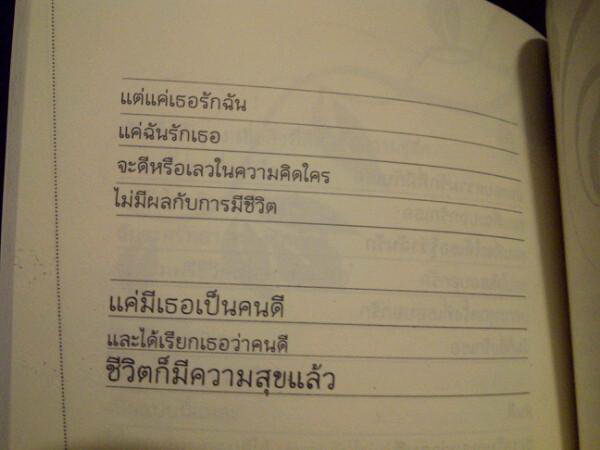 แต่แค่เธอรักฉัน
แค่ฉันรักเธอ
จะดีหรือเลวในความคิดใคร
ไม่มีผลกับการมีชีวิต
แค่มีเธอเป็นคนดี
และได้เรียกเธอว่าคนดี
ชีวิตก็มีความสุขแล้ว